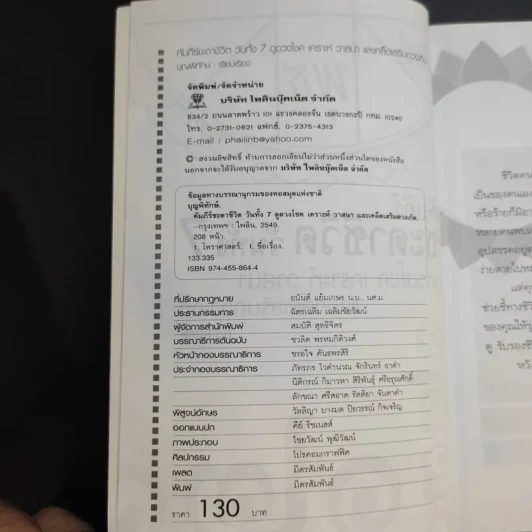 คัมภีร์ชะตาชีวิต วันทั้ง 7 ดูดวงโชค เคราะห์ วาสนา และเคล็ดเสริมดวงเกิด
บุญพิทักษ์ : เรียบเรียง
จัดพิมพ์/จัดจำหน่าย
บริษัท ไพลินบุ๊คเน็ต จำกัด
834/2 ถนนลาดพร้าว 101 แขวงคลองจั่น เขตบางกะปิ กทม. 10240
โทร. 0-2731-0621 แฟกซ์. 0-2375-4313
E-mail : phailinb@yahoo.com
© สงวนลิขสิทธิ์ ห้ามการลอกเลียนไม่ว่าส่วนหนึ่งส่วนใดของหนังสือ
นอกจากจะได้รับอนุญาตจาก บริษัท ไพลินบุ๊คเน็ต จำกัด
ข้อมูลทางบรรณานุกรมของหอสมุดแห่งชาติ
บุญพิทักษ์.
คัมภีร์ชะตาชีวิต วันทั้ง 7 ดูดวงโชค เคราะห์ วาสนา และเคล็ดเสริมดวงเกิด.
--กรุงเทพฯ : ไพลิน, 2549.
208 หน้า.
1. โหราศาสตร์. I. ชื่อเรื่อง.
133.335
ISBN 974-455-864-4
ที่ปรึกษากฎหมาย อนันต์ แย้มเกษร น.บ., นศ.ม.
ประธานกรรมการ ฉัตรเฉลิม เฉลิมชัยวัฒน์
ผู้จัดการสำนักพิมพ์ สมบัติ สุทธิจิตร
บรรณาธิการต้นฉบับ ชวลิต พรหมกิติวงศ์
หัวหน้ากองบรรณาธิการ ชรอใจ คันธพรสิริ
ประจำกองบรรณาธิการ ภัทรภร ไวคำนวณ จักรินทร์ อาดำ
นิติกรณ์ กิมาวหา สิริพันธุ์ ศรีอรุณศักดิ์
ลักขณา ศรีสอาด รัตติยา จันดาดำ
พิสูจน์อักษร วัลลิญา บางมด ปิยวรรณ์ กิจเจริญ
ออกแบบปก คีย์ รีซเนสส์
ภาพประกอบ ไชยวัฒน์ พุฒิวัฒน์
ศิลปกรรม โปรคอมกราฟฟิค
เพลต มิตรสัมพันธ์
พิมพ์ มิตรสัมพันธ์
ราคา 130 บาท
ชีวิตคน
เป็นของตนเอง
หรือร้ายก็มีอา
อุปสรรคอยู่ต
ง่ายดายไปห
แต่คุ
ช่วยชี้ทางชีวิต
ของคุณให้รุ่
ดู รับรองชีวิ
หวั